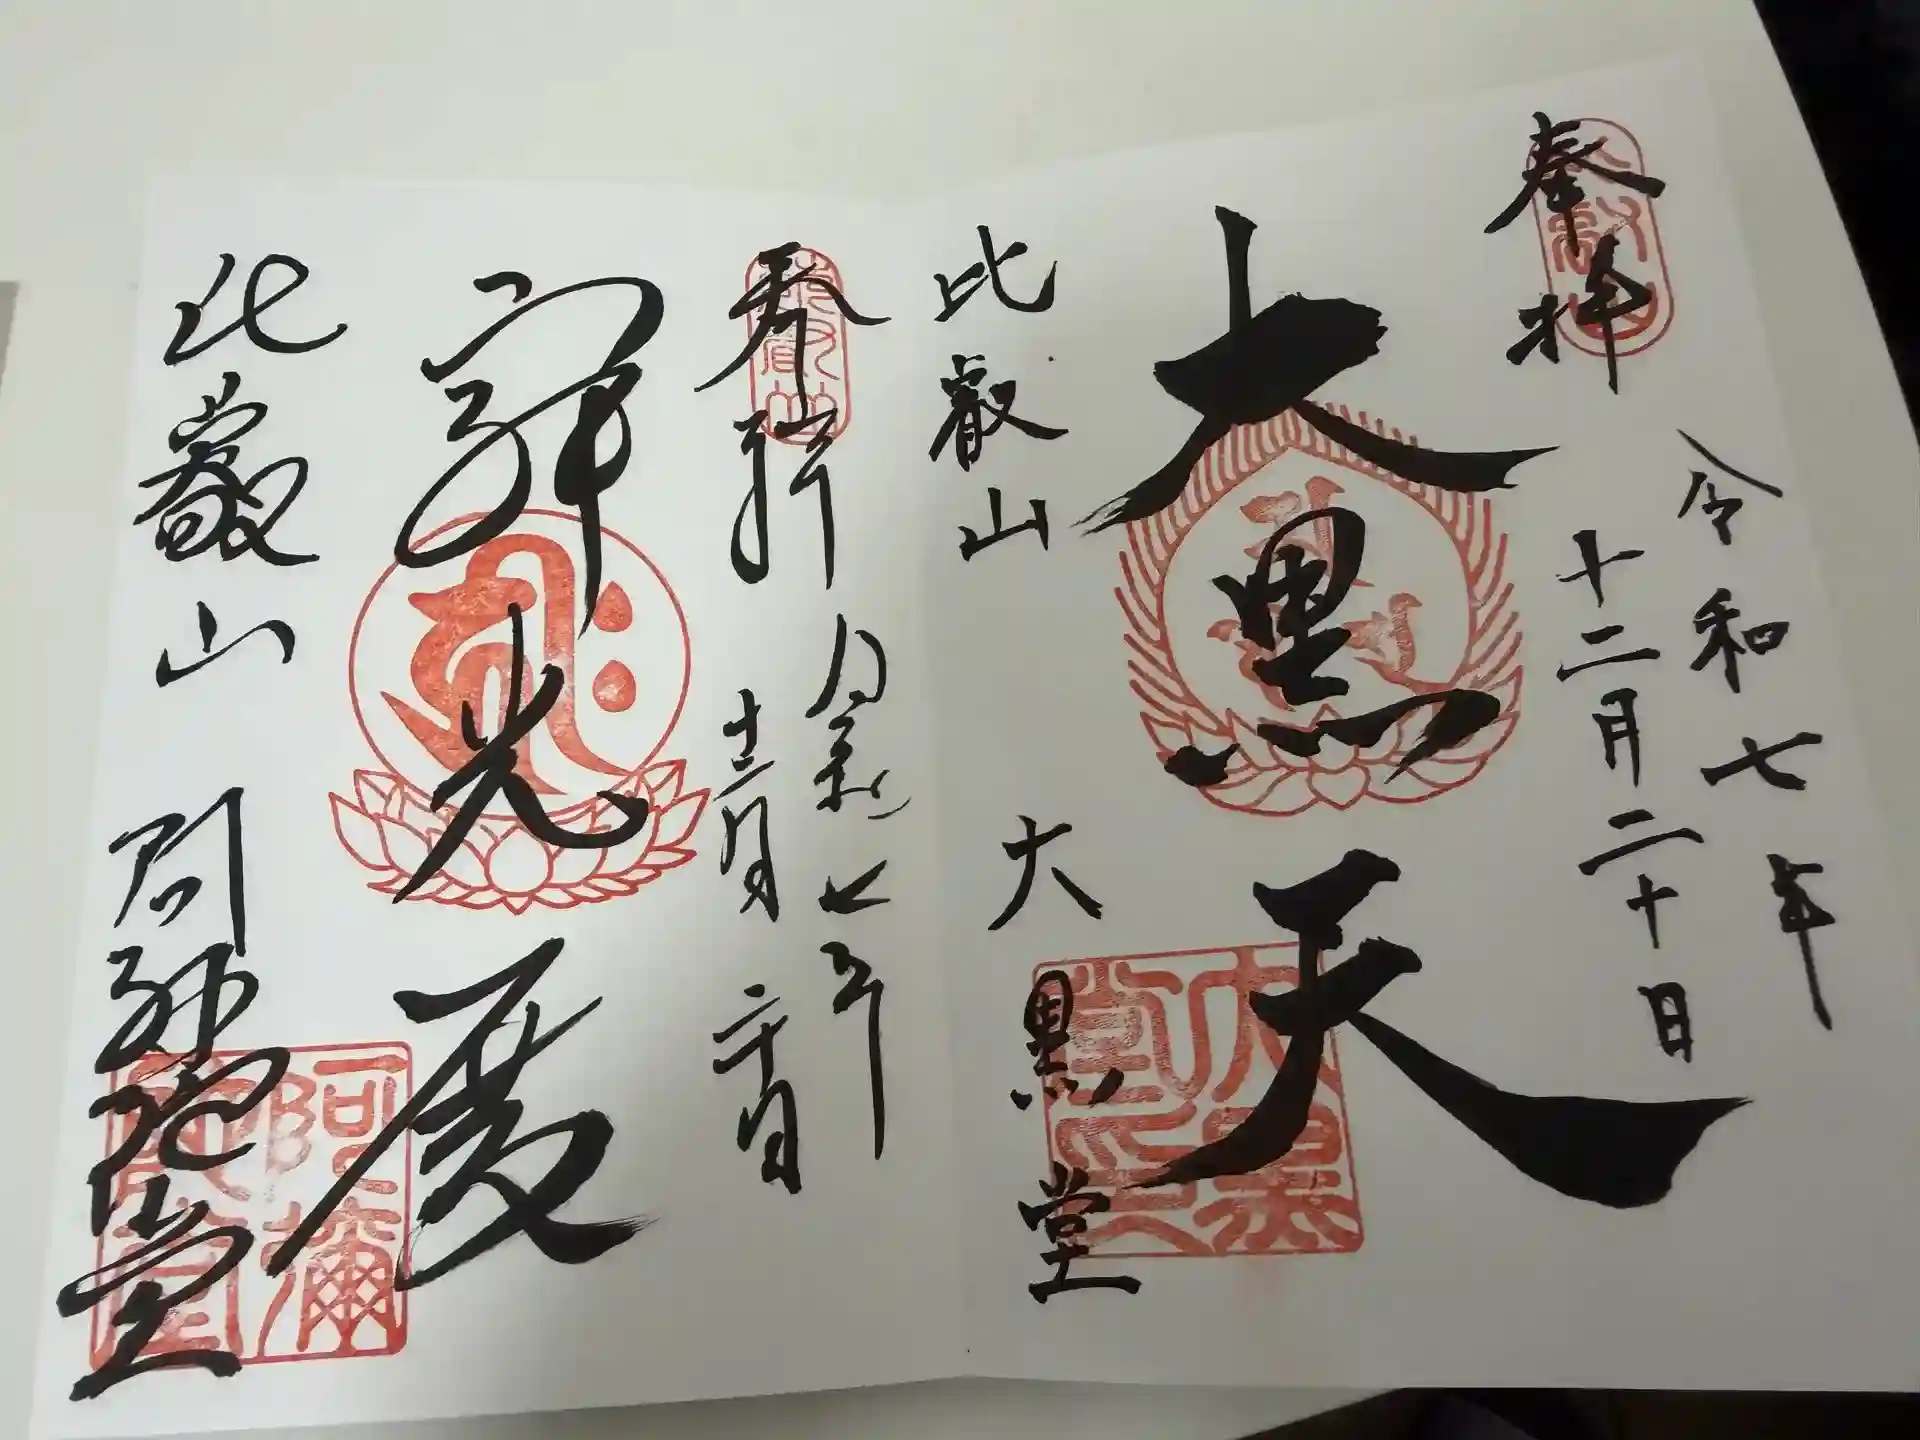 奉拝
令和七年
十二月二十日
大黒天
比叡山 大黒堂
奉拝
令和七年
十二月二十日
比叡山 阿弥陀堂
阿彌陀堂